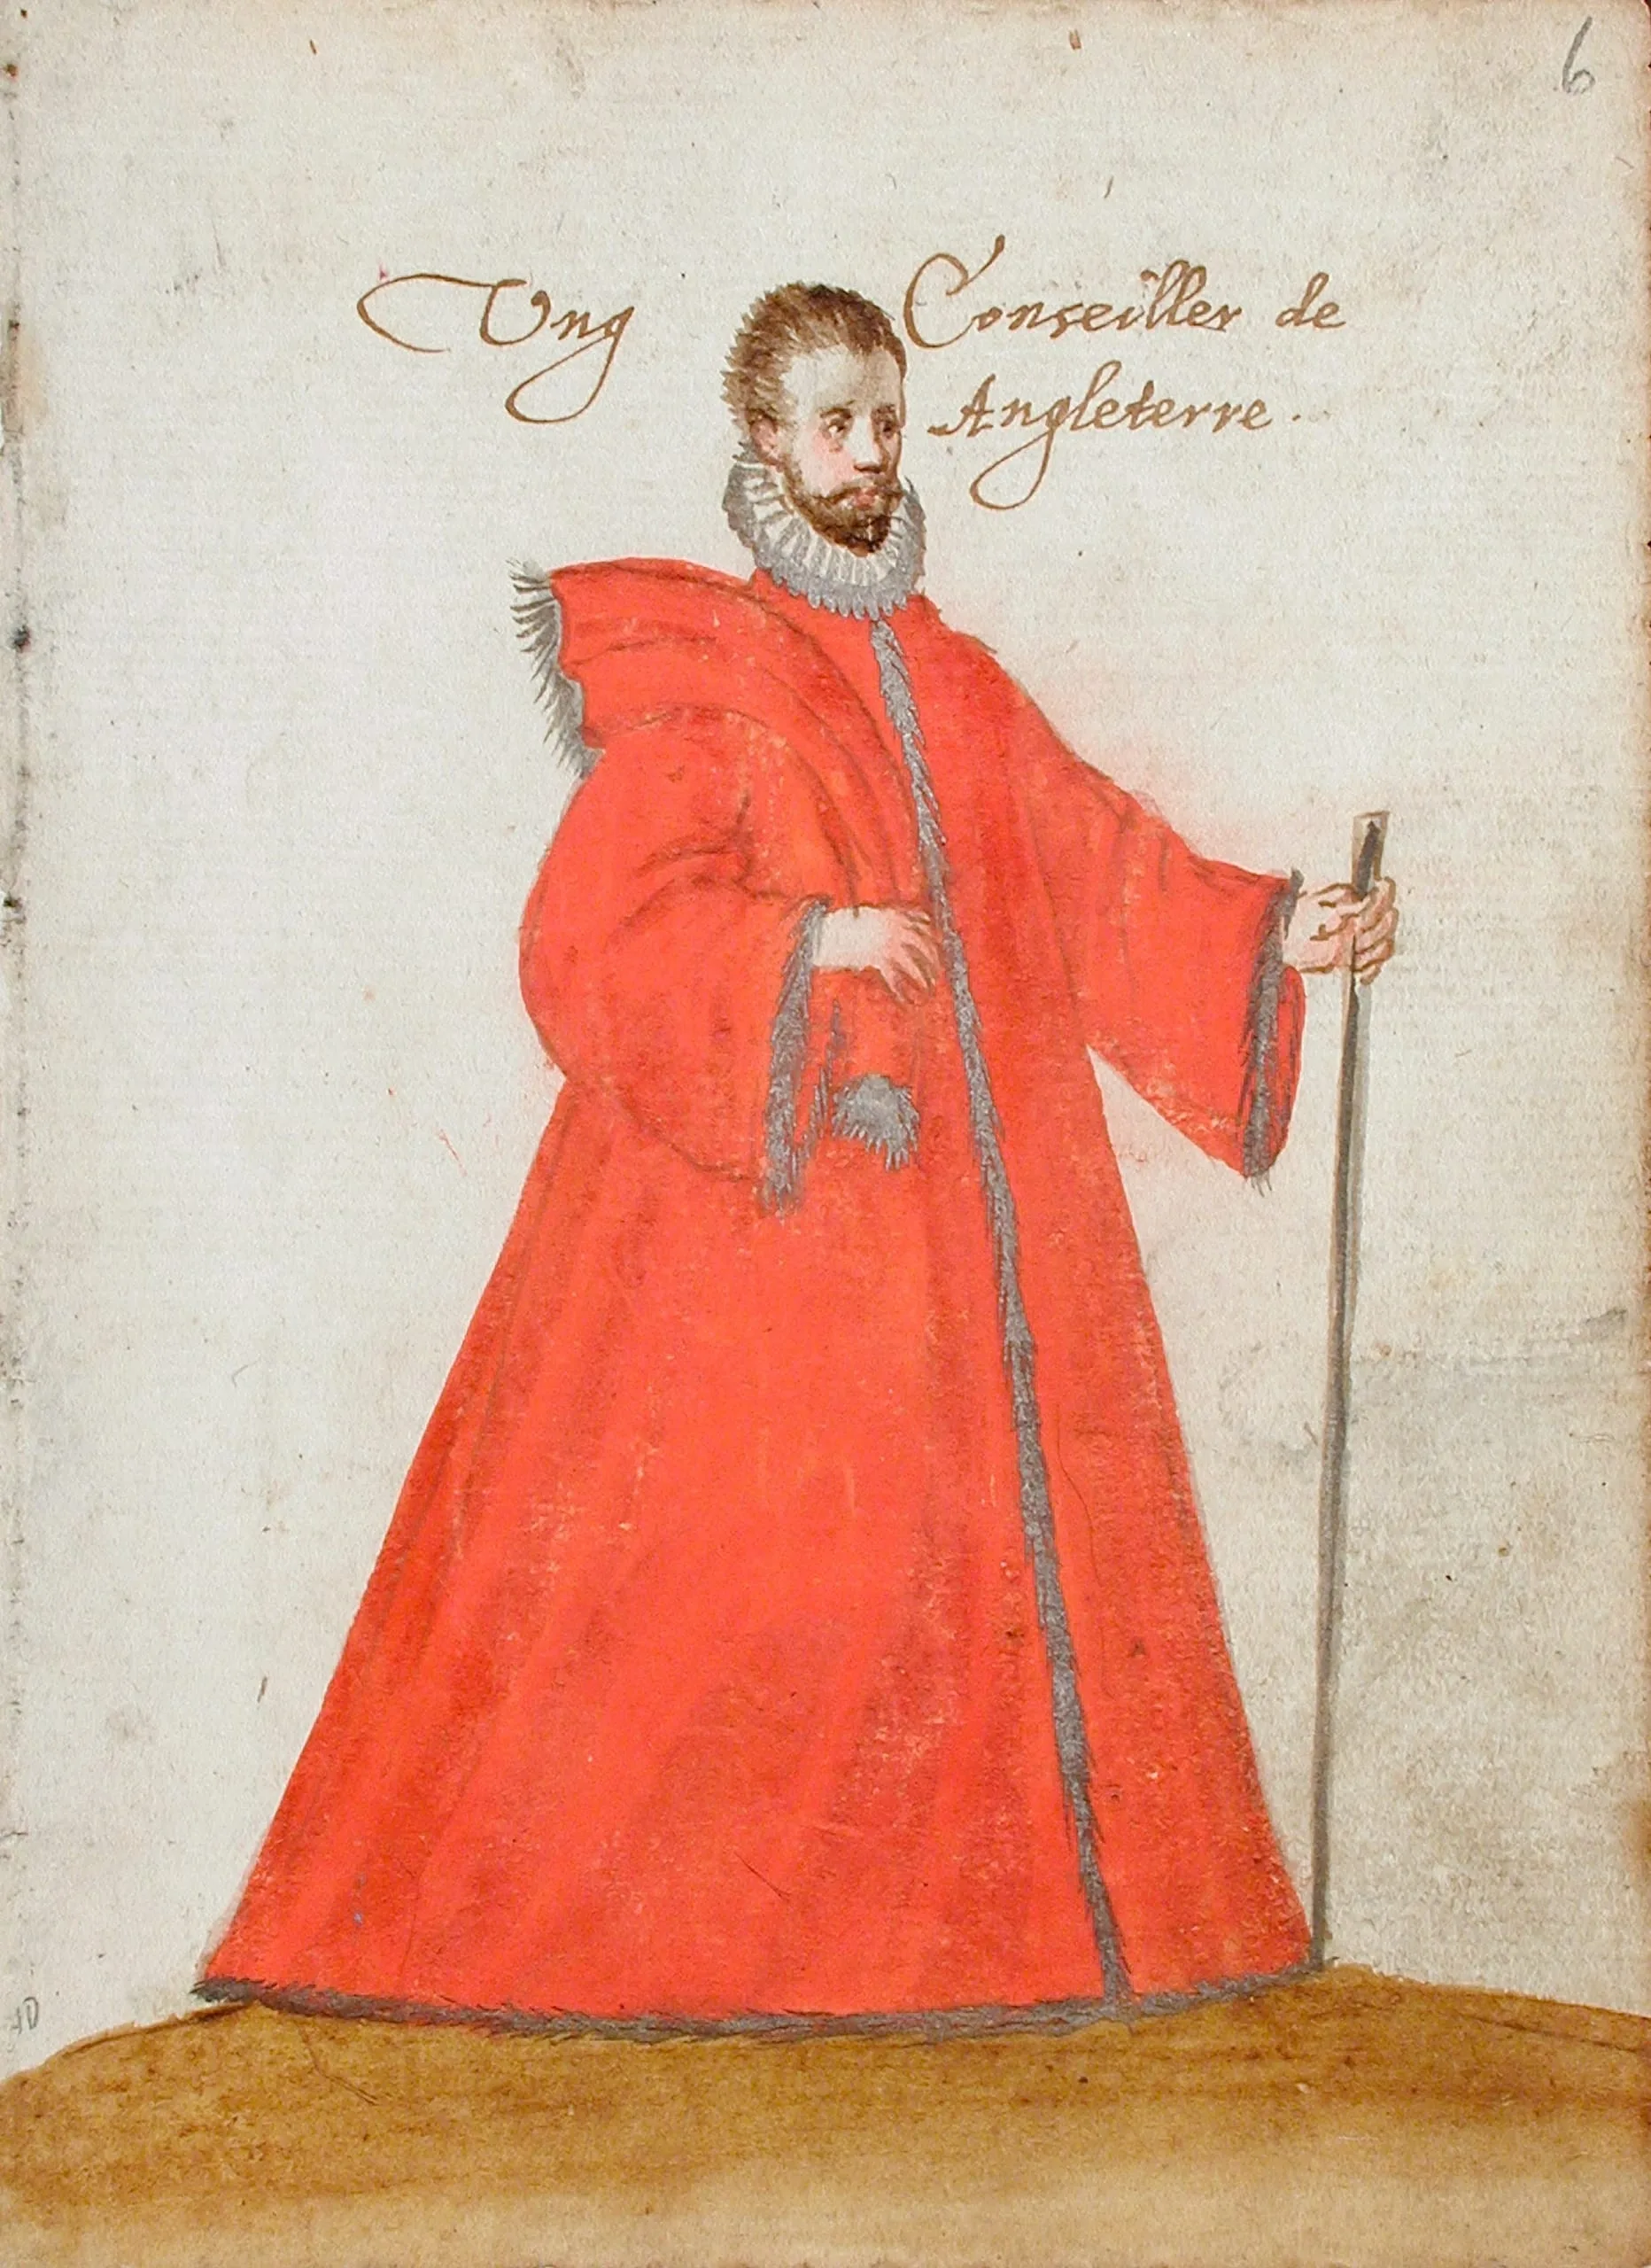 6
Ung Conseiller de
Angleterre.